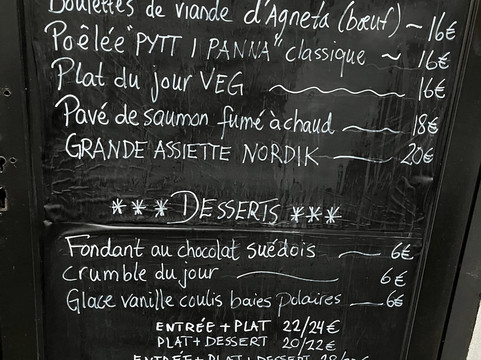 Boulettes de viande d'Agneta (bœuf) ~ 16€
Poêlée "PYTT I PANNA" classique ~ 16€
Plat du jour VEG 16€
Pavé de saumon fumé à chaud 18€
GRANDE ASSIETTE NORDIK 20€
*** DESSERTS ***
Fondant au chocolat suédois 6€
Crumble du jour 6€
Glace vanille coulis baies polaires 6€
ENTRÉE + PLAT 22/24€
PLAT + DESSERT 20/22€
ENTRÉE + PLAT + DESSERT